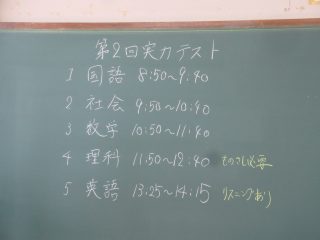 第2回実力テスト
1 国語 8:50~9:40
2 社会 9:50~10:40
3 数学 10:50~11:40
4 理科 11:50~12:40 ものさし必要
5 英語 13:25~14:15 リスニングあり